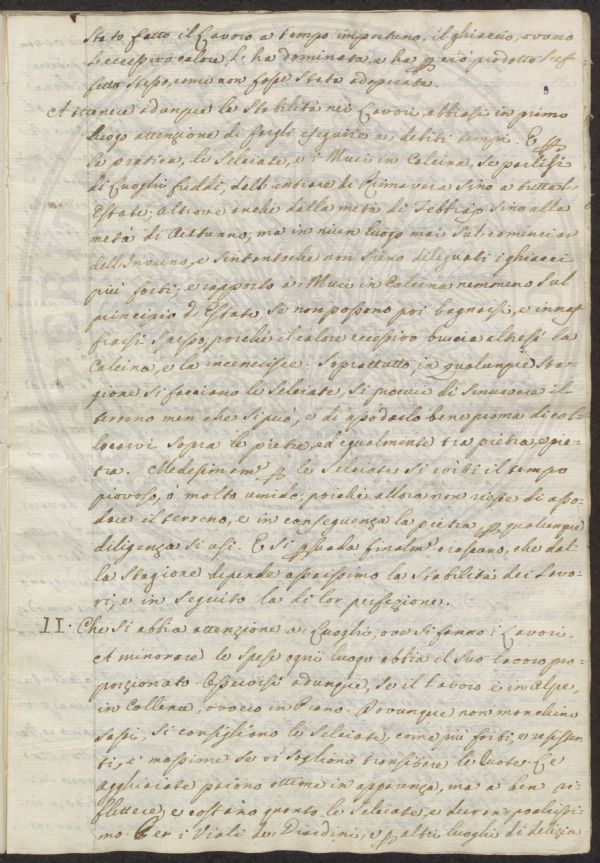 stato fatto il Lavoro a tempo importuno, il ghiaccio, ovvero
l'eccessivo calore, l'ha dominata, e ha p ciò prodotto l'ef-
fetto stesso, come non fosse stata adoperata.
Attenere adunque la stabilità nei Lavori, abbiasi in primo
luogo attenzione di fargli eseguire a' debiti tempi. E p
la pratica, le Selciate, e i Muri in Calcina, se parlisi
di Luoghi freddi, dall'entrare di Primavera sino a tutta l'
Estate; altrove anche dalla metà di Febbrajo sino alla
metà di Autunno, ma in niun luogo mai sul cominciar
dell'Inverno, e sintantochè non sieno dileguati i ghiacci
più forti; e rapporto a' Muri in Calcina nemmeno sul
principio d'Estate, se non possono poi bagnarsi, e innaf-
fiarsi spesso, perchè il calore eccessivo brucia altresì la
Calcina, e la incenerisce. Soprattutto, in qualunque Sta-
gione si facciano le Selciate, si procuri di smuovere il
terreno men che si può, e di assodarlo bene prima di col-
locarvi sopra le pietre, ed egualmente tra pietra, e pie-
tra. Medesimam.e p le Selciate si eviti il tempo
piovoso, o molto umido; perchè allora non riesce di asso-
dare il terreno, e in conseguenza la pietra, p qualunque
diligenza si usi. E si psuada finalm.e ciascuno, che dal-
la Stagione dipende assaissimo la stabilità dei Lavo-
ri, e in seguito la di lor perfezione.
II. Che si abbia attenzione a' Luoghi, ove si fanno i Lavori.
A minorare le spese ogni luogo abbia il suo lavoro pro-
porzionato. Osservisi adunque, se il Lavoro è in Alpe,
in Collina, ovvero in Piano. Dovunque non manchino
sassi, si consigliono le Selciate, come più forti, e resisten-
ti, e massime se vi sogliono transitare le Ruote. Le
agghiaiate pajono ottime in apparenza, ma a ben ri-
flettere, e costano quanto le Selciate, e durano pochissi-
mo. Per i Viali de' Giardini, e p altri luoghi di delizia